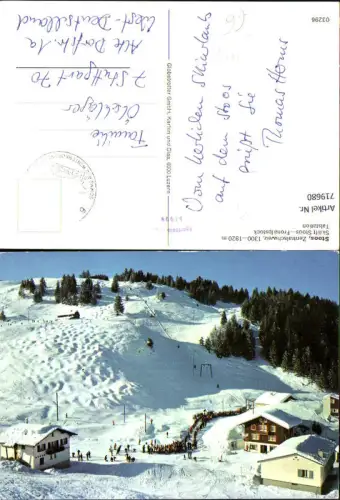 Vom herrlichen Skiurlaub
auf dem Stoos
grüßt Sie
Thomas Horns
Familie
7 Stuttgart 70
Alte Dorfstr. 1a
West-Deutschland
Globetrotter GmbH, Karten und Dias, 6000 Luzern
Stoos, Zentralschweiz, 1300–1920 m
Skilift Stoos - Fronalpstock
Talstation
Artikel Nr.
719680
03296